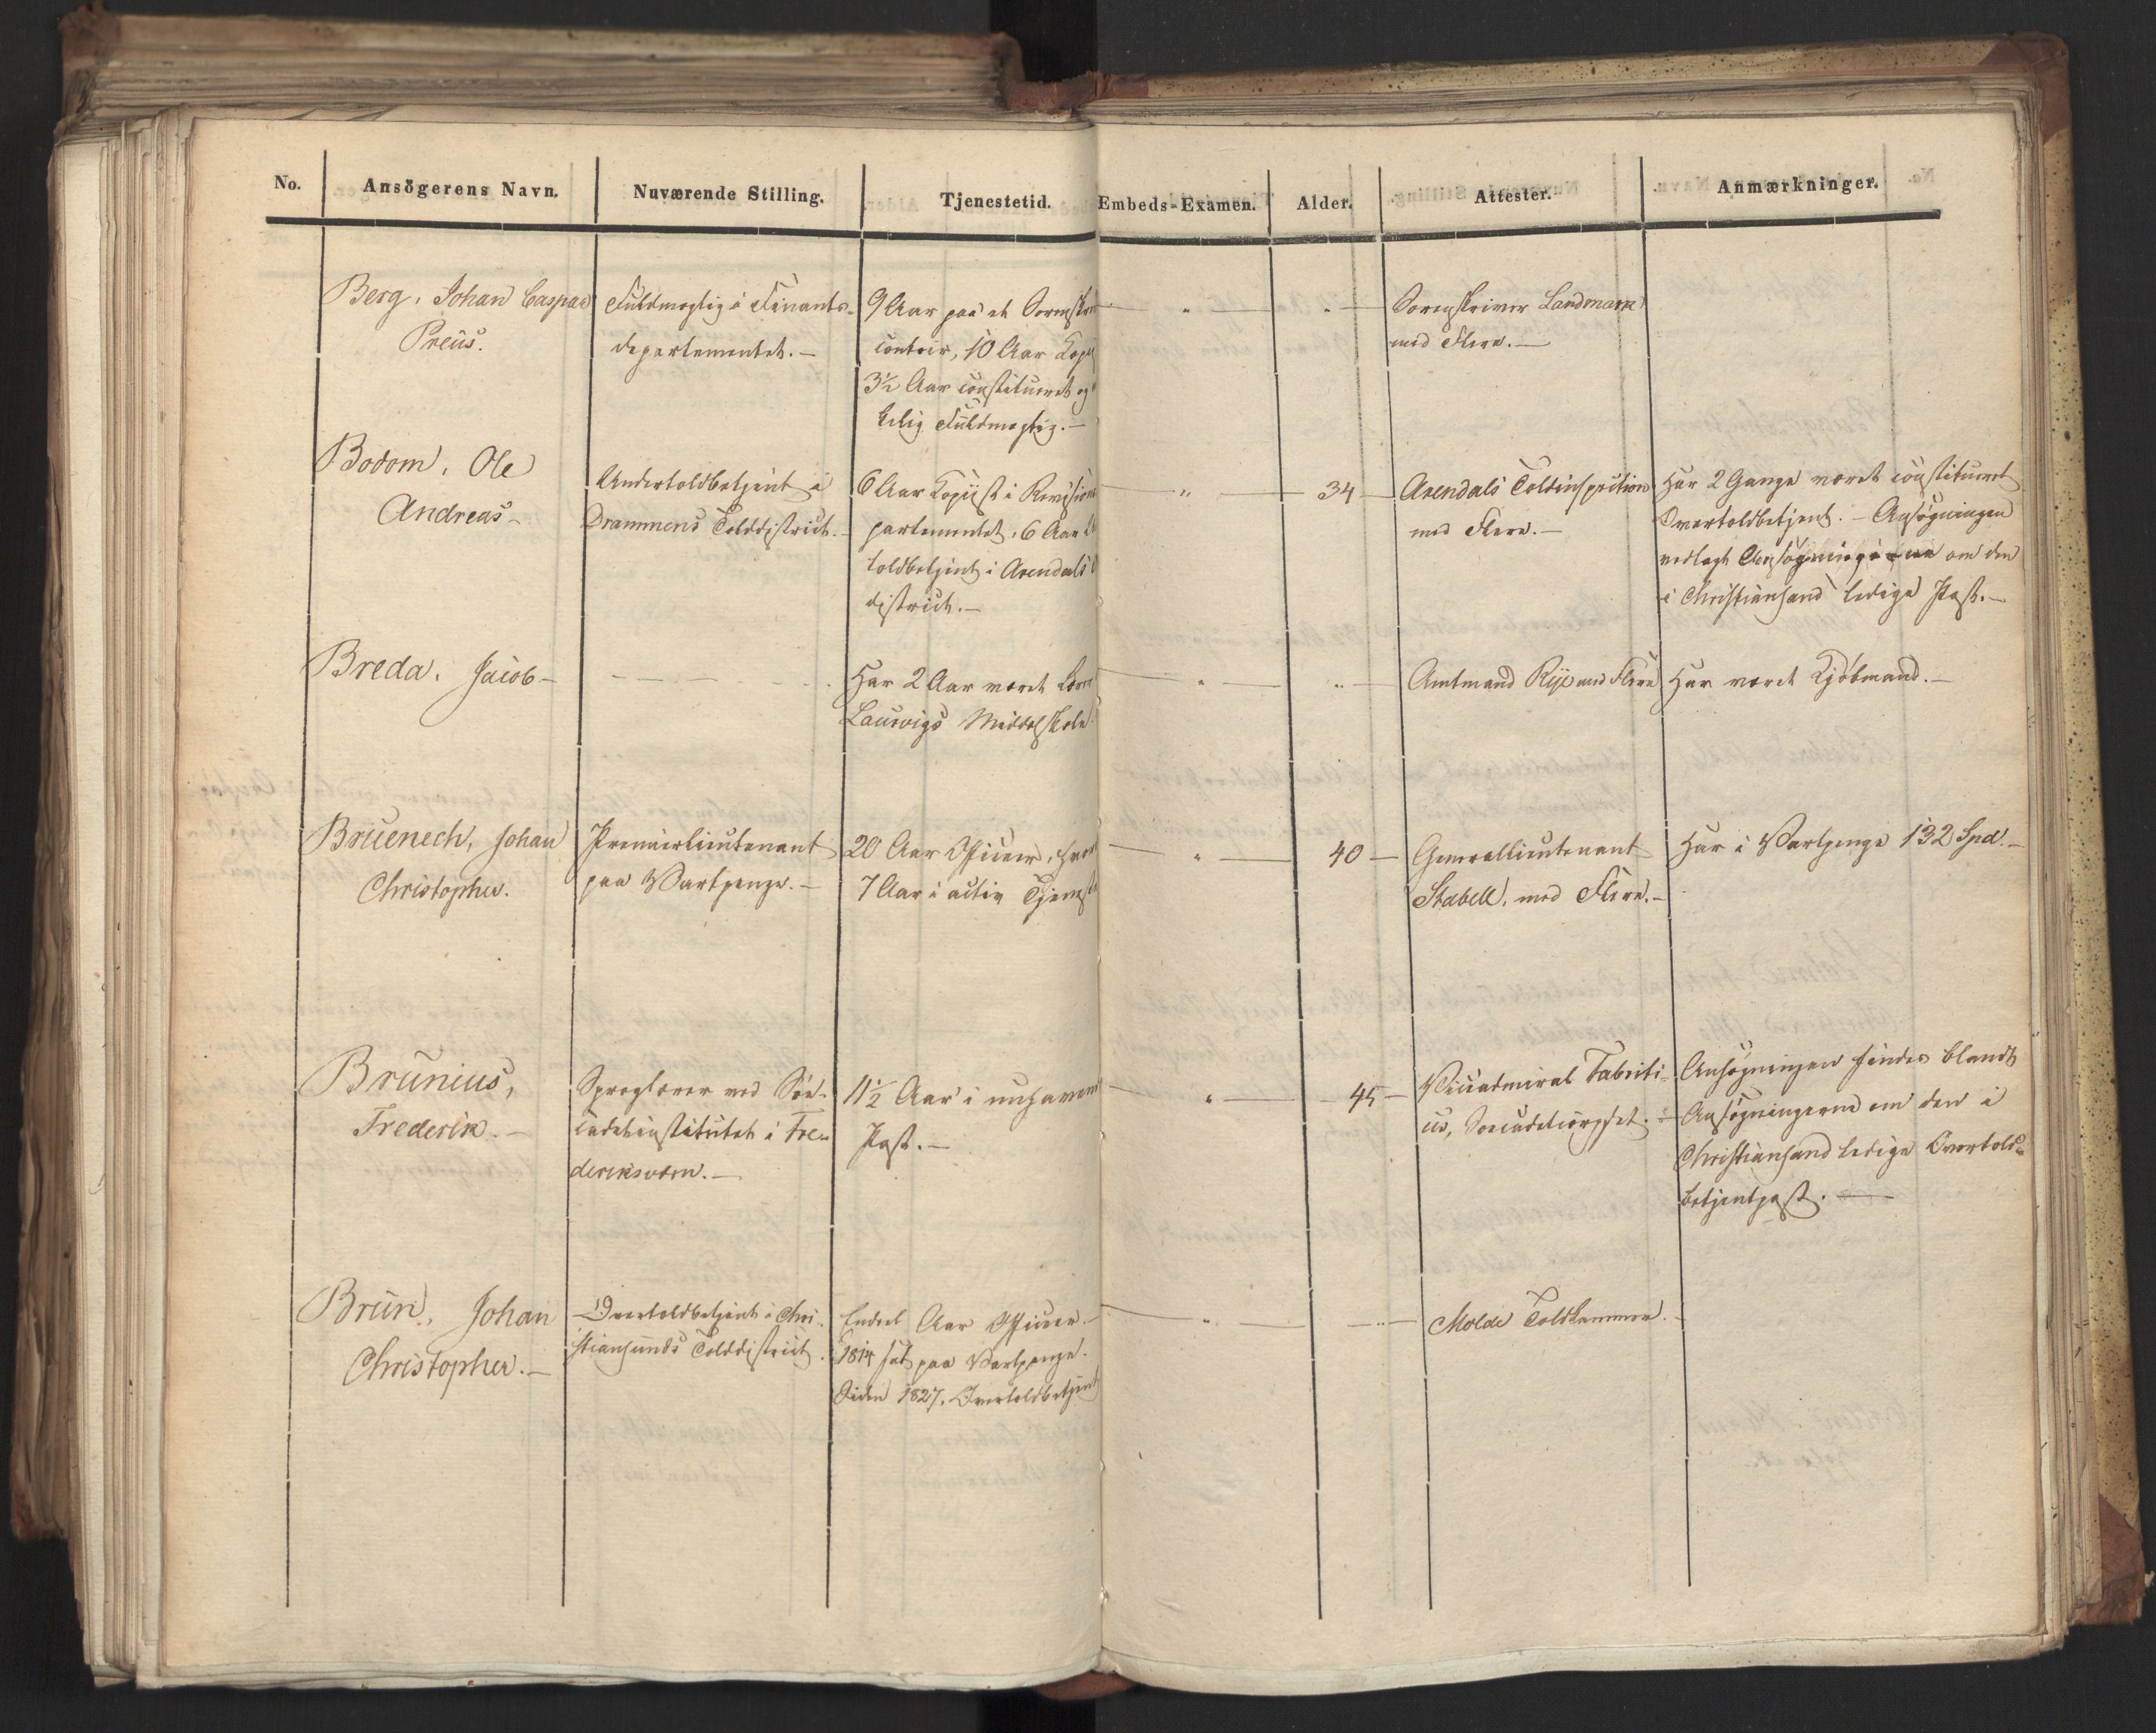 No.
Ansögerens Navn.
Nuværende Stilling.
Tjenestetid.
Embeds-Examen.
Alder.
Attester.
Anmærkninger.
Berg, Johan Caspar
Preus.
Fuldmægtig i Finants-
departementet. —
9 Aar paa et Sorenskri
contoir, 10 Aar Kopi
3½ Aar constitueret og
kelig Fuldmægtig. —
Sorenskriver Landmark
med Flere. —
Bodom, Ole
Andreas —
Undertoldbetjent i
Drammens Tolddistrict. —
6 Aar Kopiist i Revisions
partementet, 6 Aar
toldbetjent i Arendals
district. —
34
Arendals Toldinspection
med Flere. —
Har 2 Gange været constitueret
Overtoldbetjent. — Ansøgningen
vedlagt Ansøgningerne om den
i Christiansand ledige Post. —
Breda, Jacob —
Har 2 Aar været Lærer
Laurvigs Middelskole
Amtmand Rye med Flere
Har været Kjøbmand. —
Bruenech, Johan
Christopher.
Premierlieutenant
paa Vartpenge. —
20 Aar Officer, hvor
7 Aar i activ Tjeneste
40 —
Generallieutenant
Stabell, med Flere. —
Har i Vartpenge 132 Spd. —
Brunius,
Frederik. —
Sproglærer ved Søe-
cadetinstitutet i Fre-
deriksværn. —
11½ Aar i
Post. —
45 —
Viceadmiral Fabriti-
us, Søecadetcorpset. —
Ansøgningen findes blandt
Ansøgningerne om den i
Christiansand ledige Overtold-
betjentpost. —
Brun, Johan
Christopher. —
Overtoldbetjent i Chri-
stiansunds Tolddistrict.
Endeel Aar Officer. —
1814 sat paa Vartpenge.
Siden 1827. Overtoldbetjent
Molde Toldkammer. —